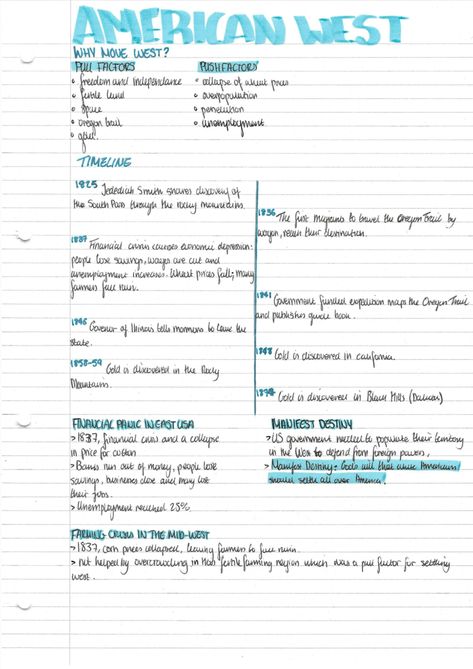 AMERICAN WEST
WHY MOVE WEST?
PULL FACTORS
freedom and independance
fertile land
space
oregon trail
PUSHFACTORS
collapse of wheat prices
overpopulation
persecution
unemployment
TIMELINE
1825 Jedediah Smith shares discovery of
the South Pass through the rocky mountains.
1836 The first migrants to travel the Oregon Trail by
wagon, reach their destination.
1837 Financial crisis causes economic depression:
people lose savings, wages are cut and
unemployment increases. Wheat prices fall; many
farmers face ruin.
1841 Government funded expedition maps the Oregon Trail
and publishes guide book.
1846 Govenor of Illinois tells mormons to leave the
state.
1848 Gold is discovered in california.
1858-59 Gold is discovered in the Rocky
Mountains.
1874 Gold is discovered in Black Hills
FINANCIAL PANIC IN EAST USA
> 1837, financial crisis and a collapse
in price for cotton
> Banks run out of money, people lose
savings, businesses close and many lost
their jobs.
> Unemployment reached 25%
MANIFEST DESTINY
> US government needed to populate their territory
in the West to defend from foreign powers,
> Manifest Destiny = Gods will that white Americans
should settle all over America!
FARMING CRISIS IN THE MID-WEST
> 1837, corn prices collapsed, leaving farmers to face ruin.
> not helped by overcrowding in the fertile farming region which was a pull factor for settling
west.